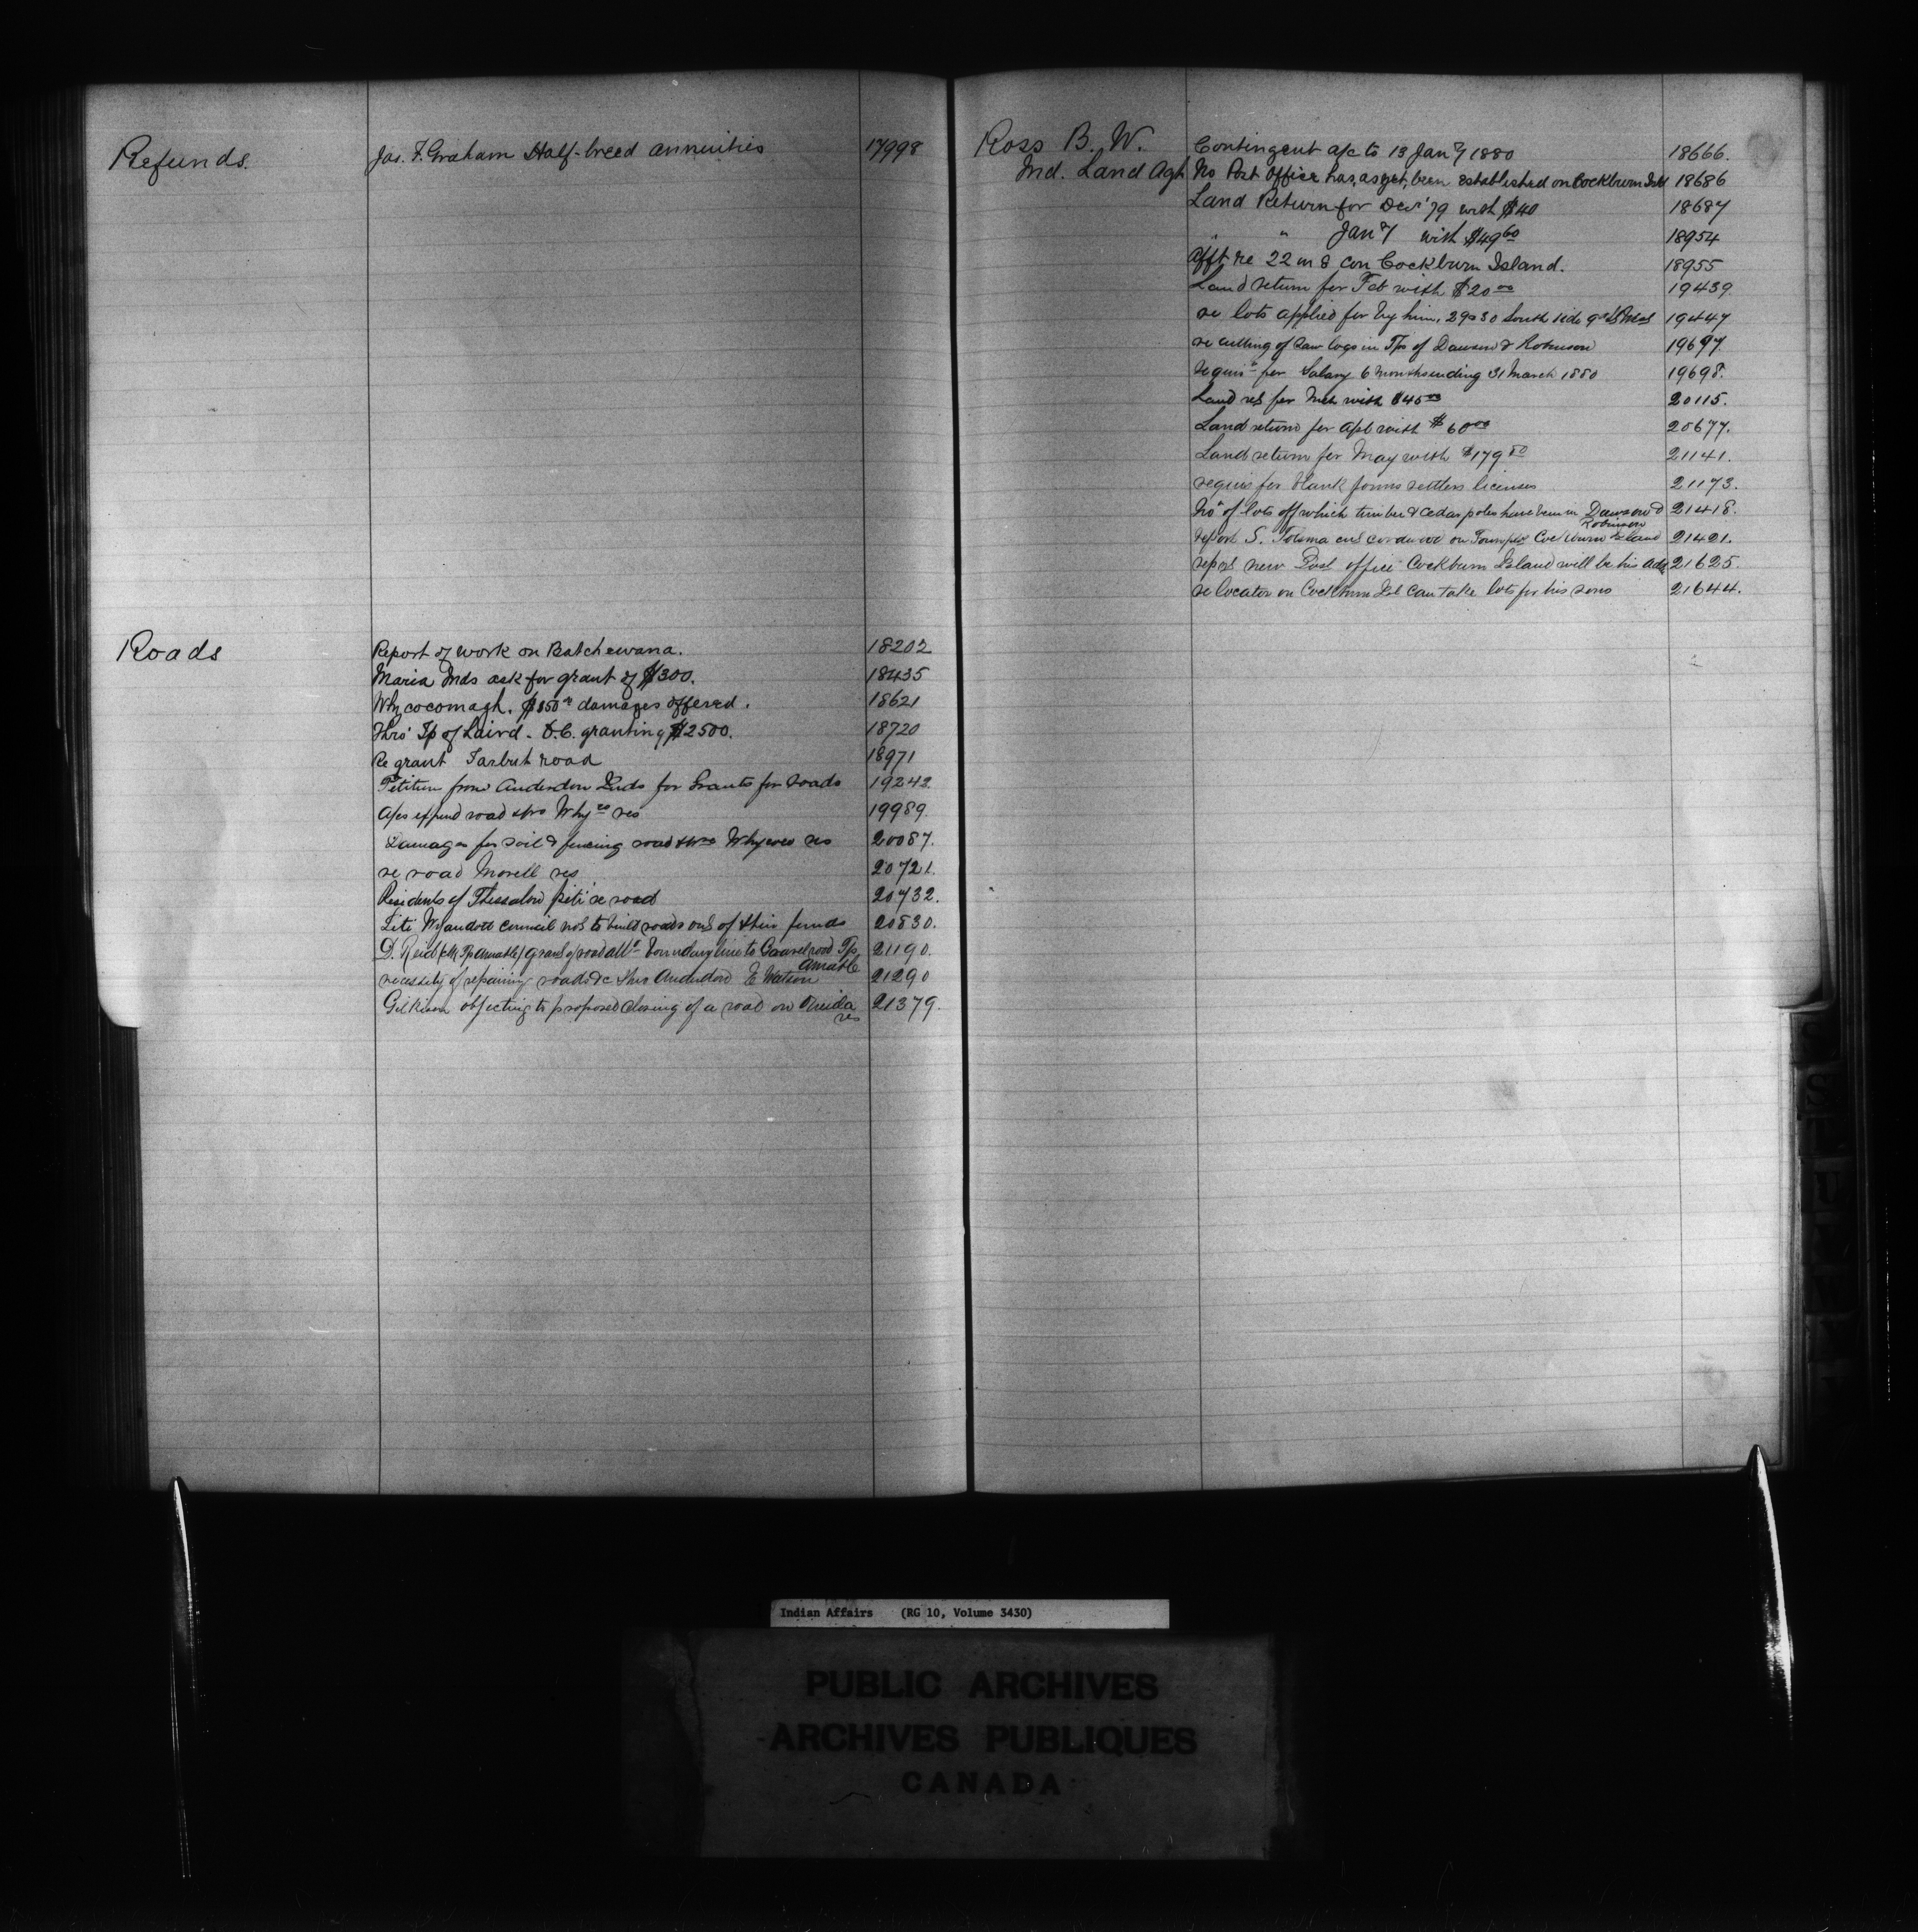 Refunds. Jas. F. Graham Half-breed annuities 17998
Roads Report of work on Batchewana. 18202
Maria Inds ask for grant of $300. 18435
Whycocomagh. $850 damages offered. 18621
Thro' Tp of Laird - O.C. granting $2500. 18720
Re grant Tarbut road 18971
Petition from Anderdon Inds for Grants for roads 19242
A/cs expend road thro Why^co res 19989.
Damages for soil & fencing road thro Whycoco res 20087.
re road Morell res 20721.
Residents of Thessalon petn re road 20732.
Wyandott council not to build roads out of their funds 20830.
D. Reid (clk Tp Amable) grant of road allce boundary line to Gravel road Tp 21190.
Amable
necessity of repairing roads &c thro Anderdon E Watson 21290
Gilkison objecting to proposed closing of a road on Oneida 21379.
res
Ross B. W. Contingent a/c to 13 Jany 1880 18666.
Ind. Land Agt No Post Office has, as yet, been established on Cockburn Isld 18686
Land Return for Decr '79 with $40 18687
" " Jany with $49 60 18954
Afft re 22 in 8 con Cockburn Island. 18955
Land return for Feb with $20 00 19439.
re lots applied for by him, 29 & 30 South side 19447
re cutting of Saw logs in Tps of Dawson & Robinson 19697.
requisn for Salary 6 months ending 31 March 1880 19698.
Land ret for Mch with $45 00 20115.
Land return for Apl with $60 00 20677.
Land return for May with $179 50 21141.
requis for blank forms settlers licenses 21173.
No of lots off which timber & cedar poles have been in Dawson & 21418.
Robinson
report S. cut cordwood on Townplot Cockburn Island 21421.
report new Post office Cockburn Island will be his add 21625.
re locator on Cockburn Isl can take lots for his sons 21644.
S
U
Indian Affairs (RG 10, Volume 3430)
PUBLIC ARCHIVES
ARCHIVES PUBLIQUES
CANADA